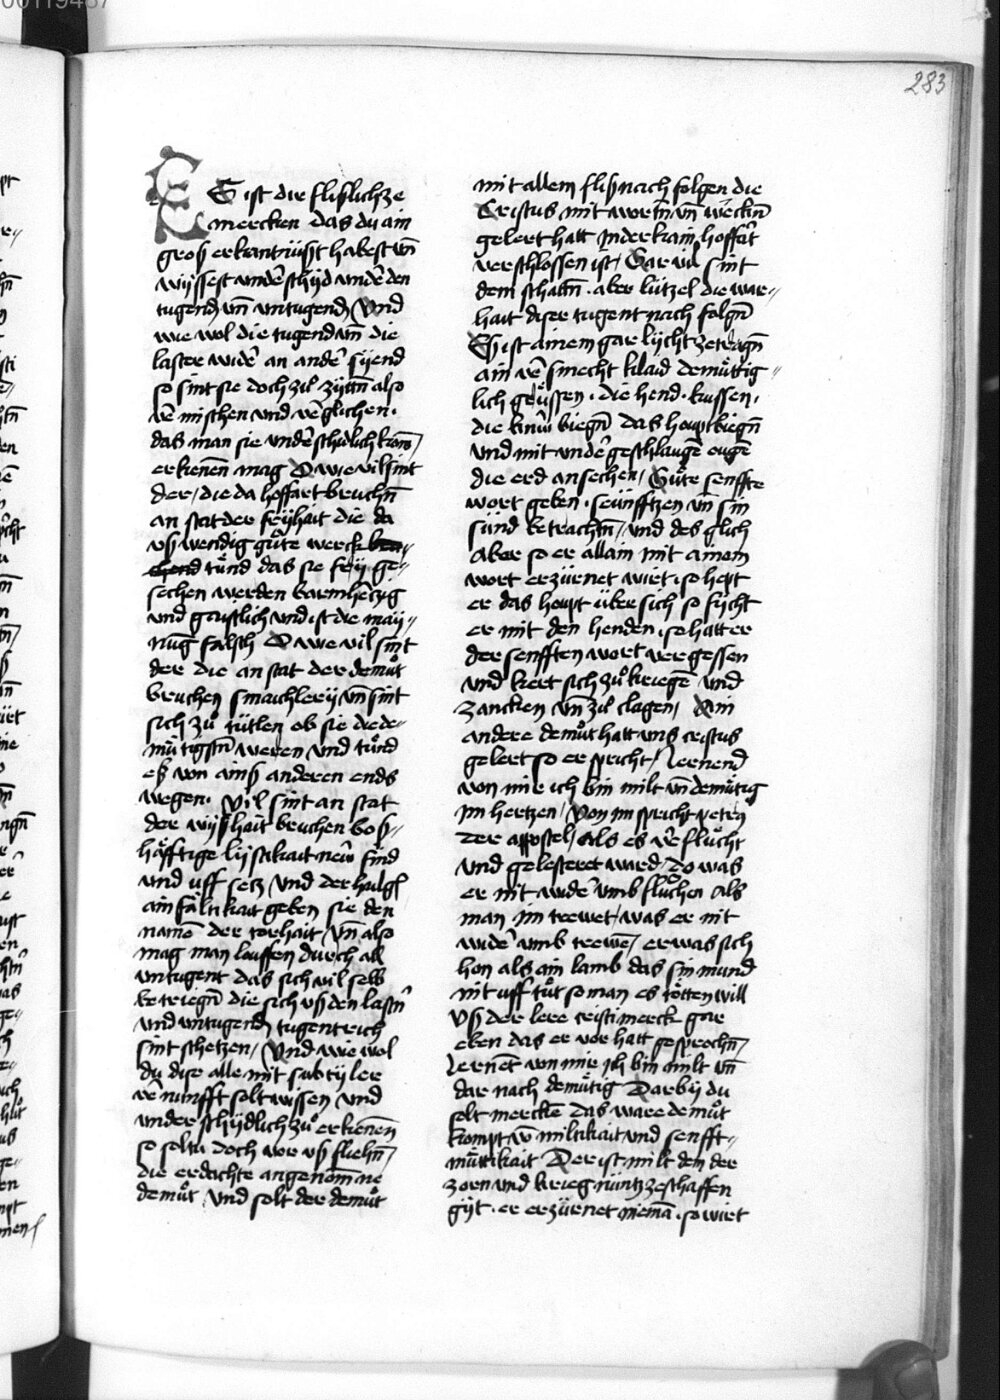 283
ES ist die flislichze
mercken das du ain
gros erkantnüsst habest vn̄
wijssest vnderschijd vnder den
tugend vn̄ vntugend Vnd
wie wol die tugend vn̄ die
laster wider an ander sijend
so sint sie doch zil zijttn̄ also
vermischen vnd verglichen ·
das man sie vnderschidlich kom
erkenen mag O wie vil sint
der / die da hoffart bruchn̄
an stat der frijhait die da
vsswendig gůte werck
tůnd das sie frij ge„
sechen werden barmhertzyg
vnd gaistlich vnd ist die maij„
nūg falsch O wie vil sint
der die an stat der demůt
bruchen smaichlerij vn̄ sint
sich zů tütlen ob sie die de„
mütigstn̄ weren vnd tůnd
ess von ainss anderen ends
wegen · Vil sint an stat
der wijsshait bruchen boss„
häfftige lijstikait new find
vnd uff setz Vnd der hailgē
ainfältikait geben sie den
namē der torhait / vn̄ also
mag man louffen durch all
vntugent das sich vil selb
betriegn̄ die sich vss den lastn̄
vnd vntugend tugentrich
sint schetzen / Vnd wie wol
du dise alle mit subtijler
vernunfft solt wissen vnd
vnderschijdlich zů erkenen
so soltu doch vor vss fliehn̄
die erdachte angenom̄ne
demůt vnd solt der demůt
mit allem fliss nach folgen die
Cristus mit wortn̄ vn̄ wercken
gelert hatt In der kain hoffart
verschlossen ist / Gar vil sint
dem schattn̄ · aber lützel die war„
hait diser tugent nach folgn̄
Es ist ainem gar lijcht ze tragn̄
ain versmecht klaid demüttig„
lich grüssen · die hend · kussen ·
die knüw biegn̄ das houpt biegn̄
vnd mit vnder geschlangē ougē
die erd ansechen / Gůte senffte
wort geben · seünfftzen vn̄ sin
sünd betrachtn̄ / vnd des glich
Aber so er allain mit ainem
wort erzürnet wirt · so hept
er das houpt über sich so ficht
er mit den henden · so hatt er
der senfften wort vergessen
vnd kert sich zů kriegē vnd
zancken vn̄ zil clagen / Ain
andere demůt hatt vns cristus
gelert so er spricht / Lernend
von mir ich bin milt vn̄ demütig
Im hertzen / Von im spricht petrus
Der appostel / Als es ver flůcht
vnd gelesteret ward / do was
er nit wider vmb flůchen als
man im trewet / was er nit
wider vmb trewē / er was sich
hon als ain lamb das sin mund
nit uff tůt so man es tötten will
Vss der lere cristi merck gar
eben das er vor hatt gesprochn̄
Lernēt von mir Jch bin milt vn̄
dar nach demütig Darbij du
solt merckē das ware demůt
kompt vō miltikait vnd senfft„
můttikait Der ist milt dem der
zorn vnd krieg nüntz ze schaffen
gijt · er erzürnet niemā · so wirt